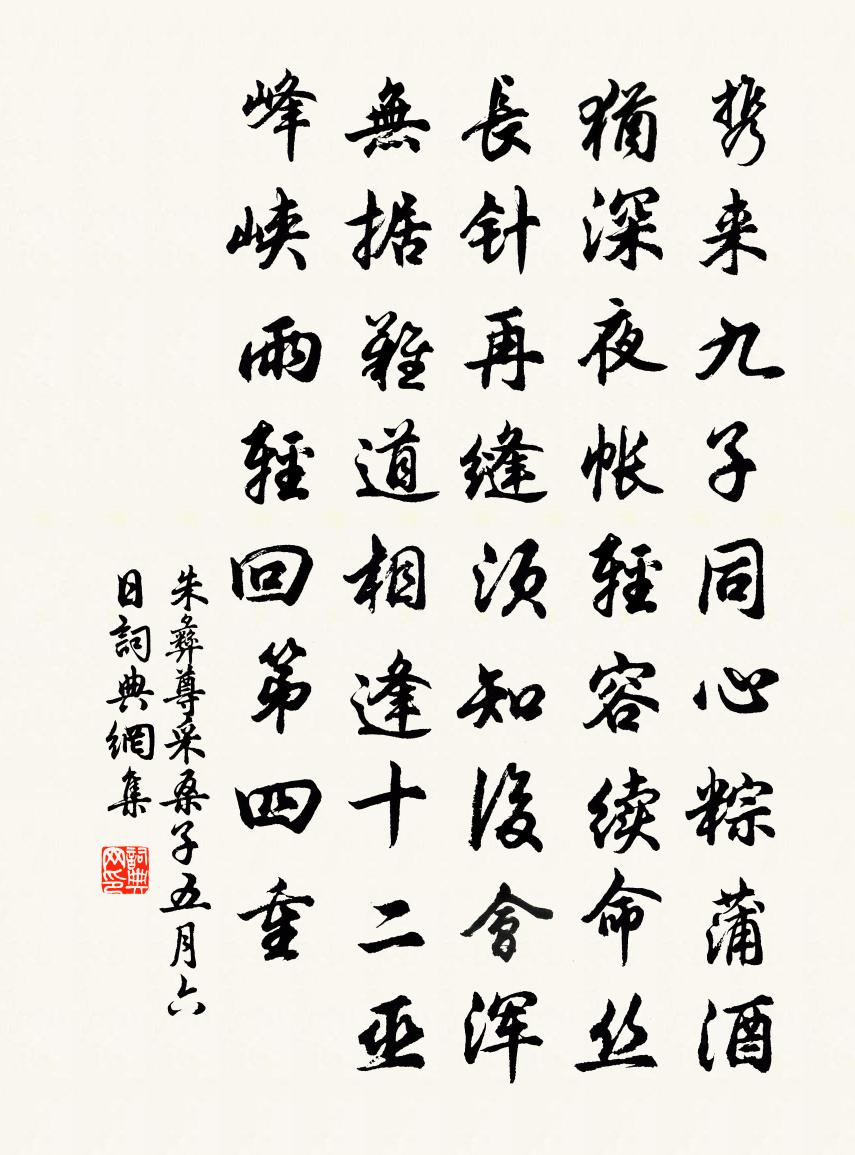 携来九子同心粽蒲酒
猶深夜帐輕容续命丝
長针再缝须知後會浑
無据難道相逢十二巫
峰峡雨輕回第四重
朱彝尊采桑子五月六
日詞典網集
詞典網印